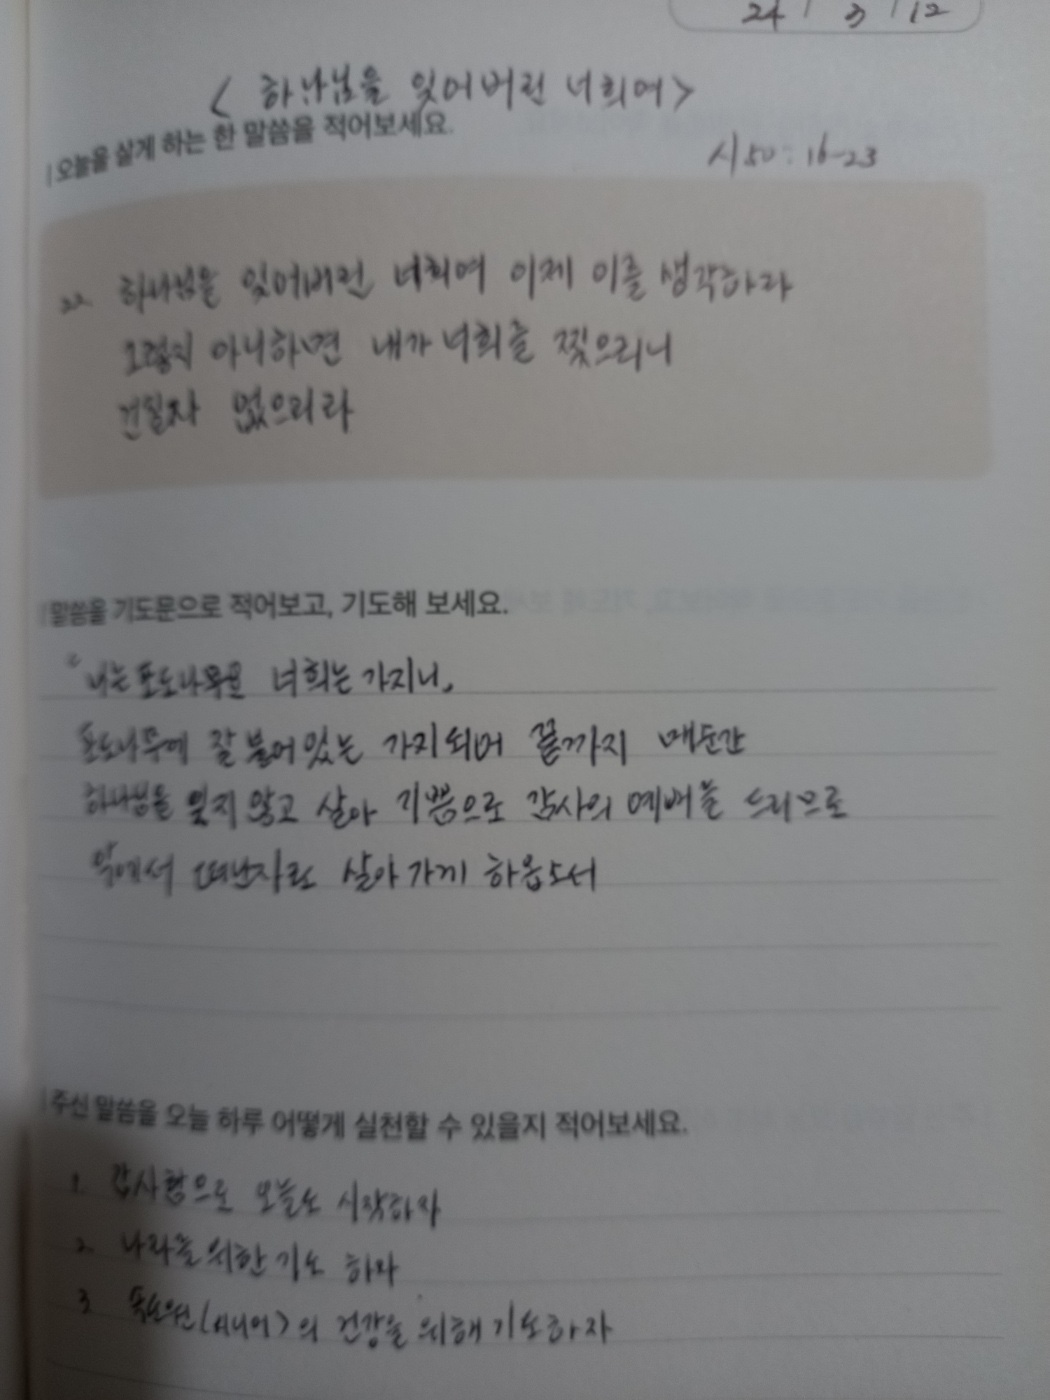 24 / 3 / 12
< 하나님을 잊어버린 너희여 >
오늘을 살게 하는 한 말씀을 적어보세요.
시 50 : 16-23
22. 하나님을 잊어버린 너희여 이제 이를 생각하라
그렇지 아니하면 내가 너희를 찢으리니
건질자 없으리라
말씀을 기도문으로 적어보고, 기도해 보세요.
"나는 포도나무요 너희는 가지니"
포도나무에 잘 붙어있는 가지되어 끝까지 매순간
하나님을 잊지 않고 살아 기쁨으로 감사의 예배를 드리므로
악에서 떠난자로 살아가게 하옵소서
주신 말씀을 오늘 하루 어떻게 실천할 수 있을지 적어보세요.
1. 감사함으로 오늘도 시작하자
2. 나라를 위한 기도 하자
3. (시니어)의 건강을 위해 기도하자